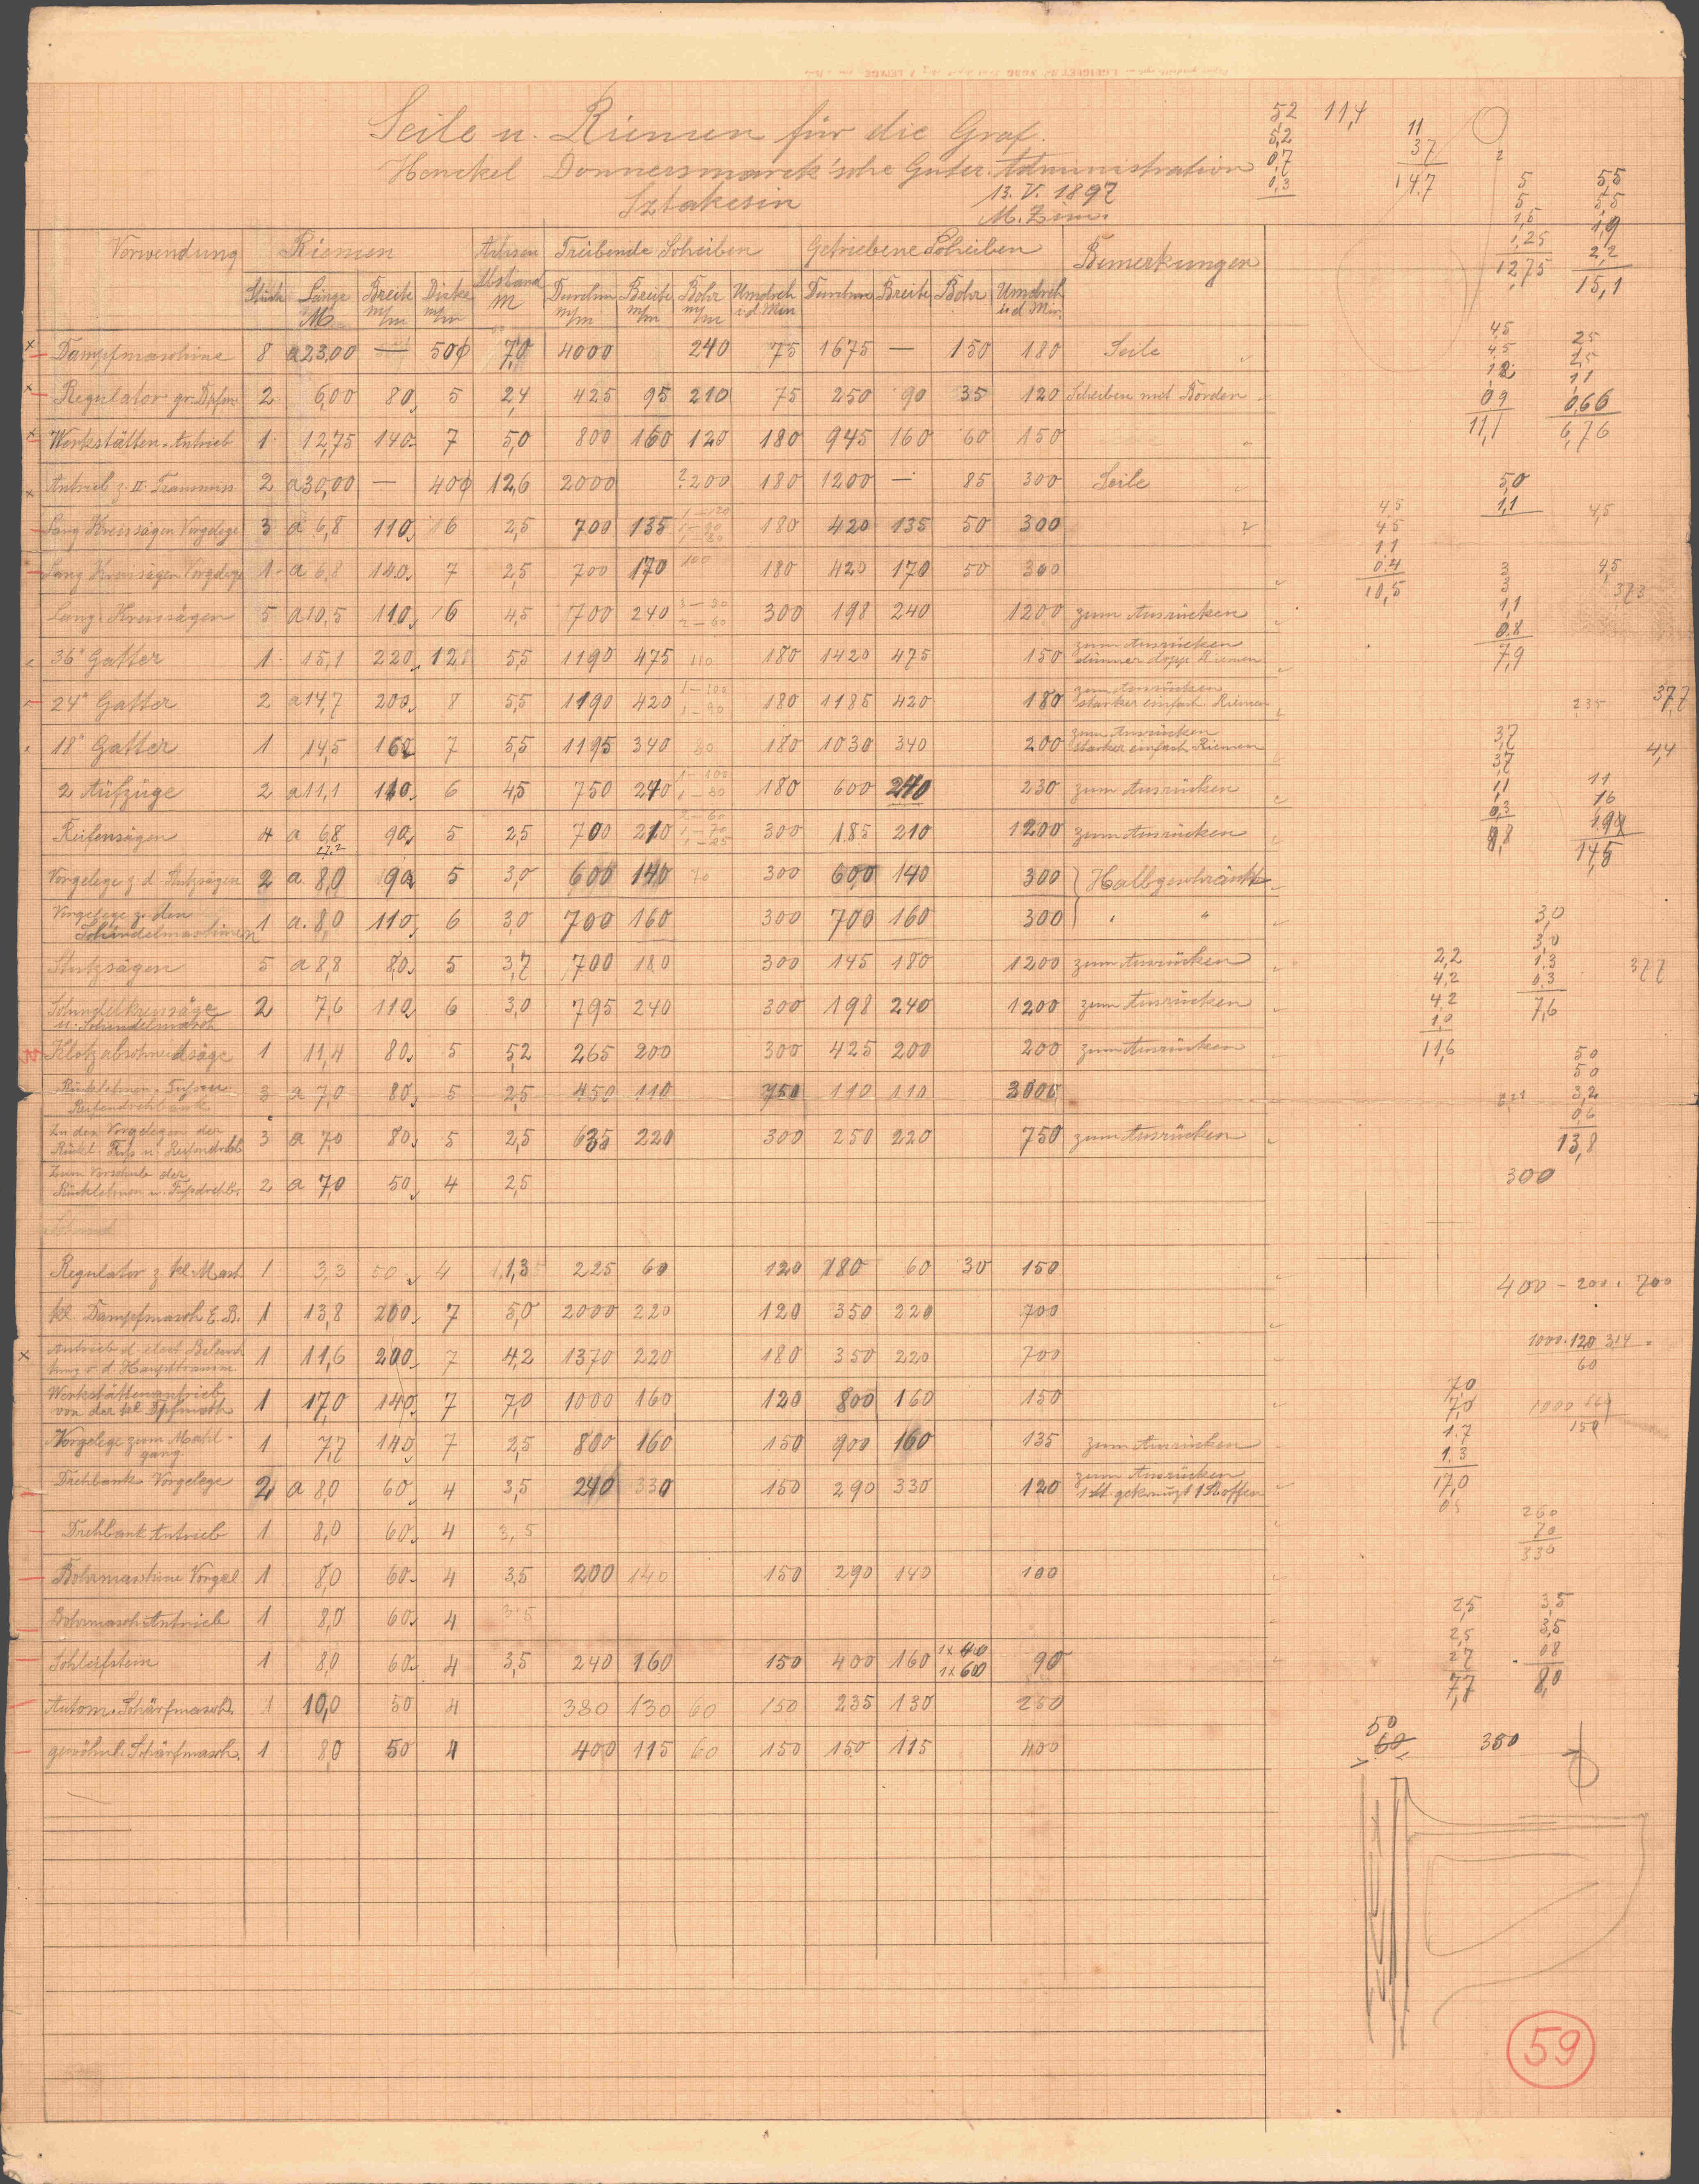 Seile u. Riemen für die Graf.
Henckel Donnersmarck'sche Güter. Administration
Sztakcsin
13. V. 1897
Verwendung Riemen Achsen Abstand M Treibende Scheiben Getriebene Scheiben Bemerkungen
Stück Länge M Breite m/m Dicke m/m Durchm m/m Breite m/m Bohr m/m Umdreh i. d. Min Durchm Breite Bohr Umdreh i. d. Min.
Dampfmaschine 8 a 23,00 — 50ϕ 7,0 4000 240 75 1675 — 150 180 Seile
Regulator gr. Dpfm 2 6,00 80 5 2,4 425 95 210 75 250 90 35 120 Scheiben mit Borden
Werkstätten-Antrieb 1 12,75 140 7 5,0 800 160 120 180 945 160 60 150
Antrieb z. II. Transmiss 2 a 30,00 — 40ϕ 12,6 2000 ? 200 180 1200 — 85 300 Seile
Lang Kreissägen Vorgelege 3 a 6,8 110 6 2,5 700 135 1–120 1–90 1–80 180 420 135 50 300
Lang Kreissägen Vorgelege 1 a 6,8 140 7 2,5 700 170 100 180 420 170 50 300
Lang Kreissägen 5 a 10,5 110 6 4,5 700 240 3–90 2–60 300 198 240 1200 zum Ausrücken
36" Gatter 1 15,1 220 12 5,5 1190 475 110 180 1420 475 150 zum Ausrücken
dünner dopp. Riemen
24" Gatter 2 a 14,7 200 8 5,5 1190 420 1–100 1–90 180 1185 420 180 zum Ausrücken
starker einfach. Riemen
18" Gatter 1 14,5 160 7 5,5 1195 340 80 180 1030 340 200 zum Ausrücken
starker einfach Riemen
2 Aufzüge 2 a 11,1 110 6 4,5 750 240 1–100 1–80 180 600 240 230 zum Ausrücken
Reifensägen 4 a 6,8 90 5 2,5 700 210 2–60 1–70 1–85 300 185 210 1200 zum Ausrücken
27,2
Vorgelege z. d. Stutzsägen 2 a 8,0 90 5 3,0 600 140 70 300 600 140 300 Halbgeschränkt
Vorgelege zu den
Schindelmaschinen 1 a. 8,0 110 6 3,0 700 160 300 700 160 300 " "
Stutzsägen 5 a 8,8 80 5 3,7 700 180 300 145 180 1200 zum Ausrücken
Schindelkreissäge
u. Schindelmasch 2 7,6 110 6 3,0 795 240 300 198 240 1200 zum Ausrücken
Klotzabschneidsäge 1 11,4 80 5 5,2 265 200 300 425 200 200 zum Ausrücken
Rücklehnen- Fuss u
Reifendrehbank 3 a 7,0 80 5 2,5 450 110 750 110 110 3000
Zu den Vorgelegen der
Rückl. Fuss u. Reifendrehb 3 a 7,0 80 5 2,5 635 220 300 250 220 750 zum Ausrücken
Zum Vorschub der
Rücklehnen u. Fussdrehb. 2 a 7,0 50 4 2,5
Regulator z. kl. Masch 1 3,3 50 4 1,3 225 60 120 180 60 30 150
kl. Dampfmasch E. B. 1 13,8 200 7 5,0 2000 220 120 350 220 700
Antrieb d. elect Beleuch
tung v. d. Haupttransm. 1 11,6 200 7 4,2 1370 220 180 350 220 700
Werkstättenantrieb
von der kl Dpfmasch 1 17,0 140 7 7,0 1000 160 120 800 160 150
Vorgelege zum Mahl-
gang 1 7,7 145 7 2,5 800 160 150 900 160 135 zum Ausrücken
Drehbank Vorgelege 2 a 8,0 60 4 3,5 240 330 150 290 330 120 zum Ausrücken
1 St. gekreuzt 1 St. offen
Drehbank Antrieb 1 8,0 60 4 3,5
Bohrmaschine Vorgel 1 8,0 60 4 3,5 200 140 150 290 140 100
Bohrmasch Antrieb 1 8,0 60 4 3,5
Schleifstein 1 8,0 60 4 3,5 240 160 150 400 160 1x40 1x60 90
Autom. Schärfmasch. 1 10,0 50 4 380 130 60 150 235 130 250
gewöhnl. Schärfmasch. 1 8,0 50 4 400 115 60 150 150 115 400
5,2 11,4
5,2
0,7
0,3
11
37
14,7
5
5
1,5
1,25
12,75
5,5
5,5
1,9
2,2
15,1
4,5
4,5
1,2
0,9
11,1
2,5
2,5
1,1
0,66
6,76
5,0
1,1
4,5
4,5
4,5
1,1
0,4
10,5
3
3
1,1
0,8
7,9
4,5
373
235
377
3,7
3,7
1,1
0,3
8,8
4,4
11
16
1,99
14,5
3,0
3,0
1,3
0,3
7,6
2,2
4,2
4,2
1,0
11,6
377
50
50
3,2
0,6
13,8
300
400 – 200 . 700
1000.120 3,14 =
60
7,0
7,0
1,7
1,3
17,0
1000 160
150
260
70
330
2,5
2,5
2,7
7,7
3,5
3,5
0,8
8,0
50
60
350
59